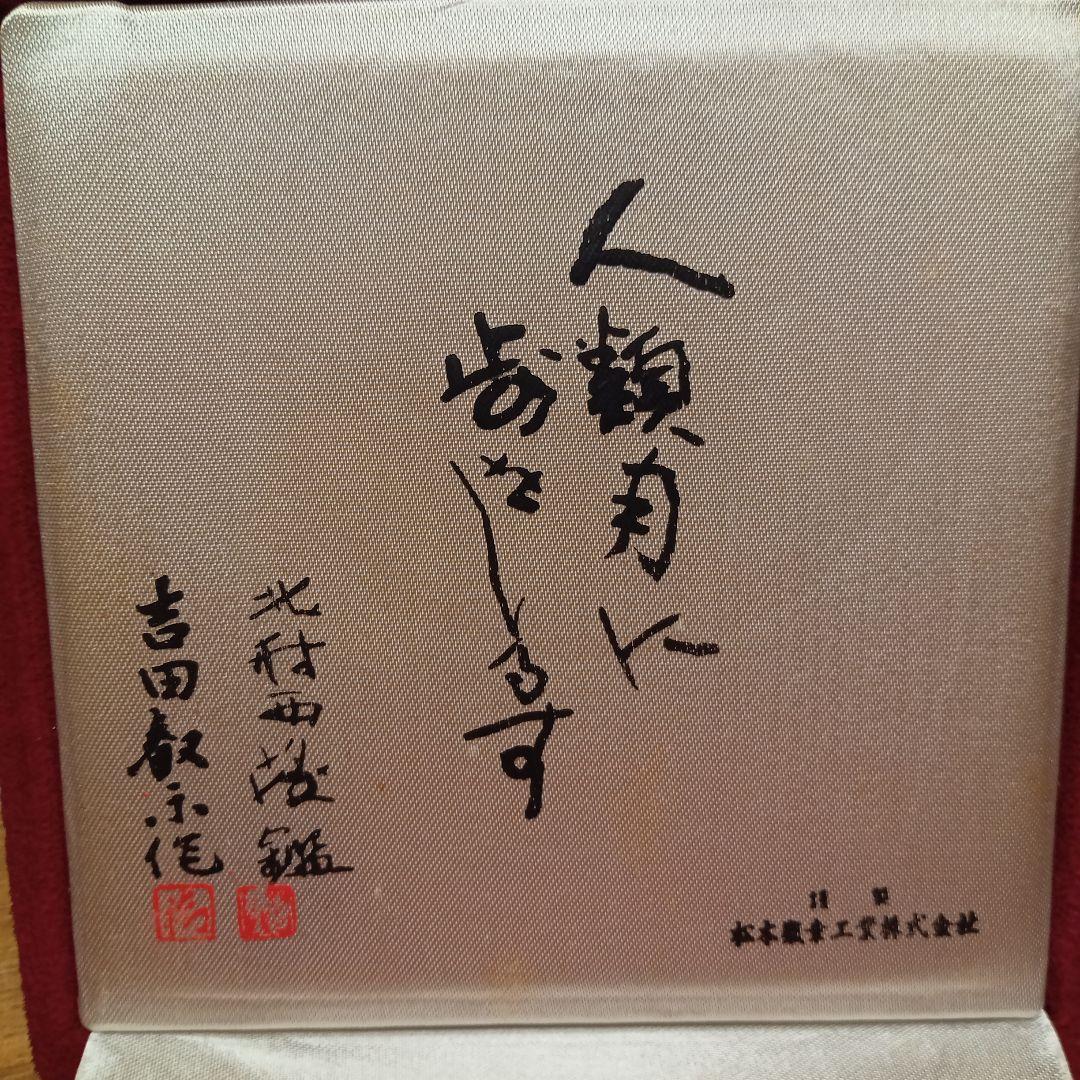 人類月に
歩を印す
北村西望鑑
吉田叡示作
松本徽章工業株式会社